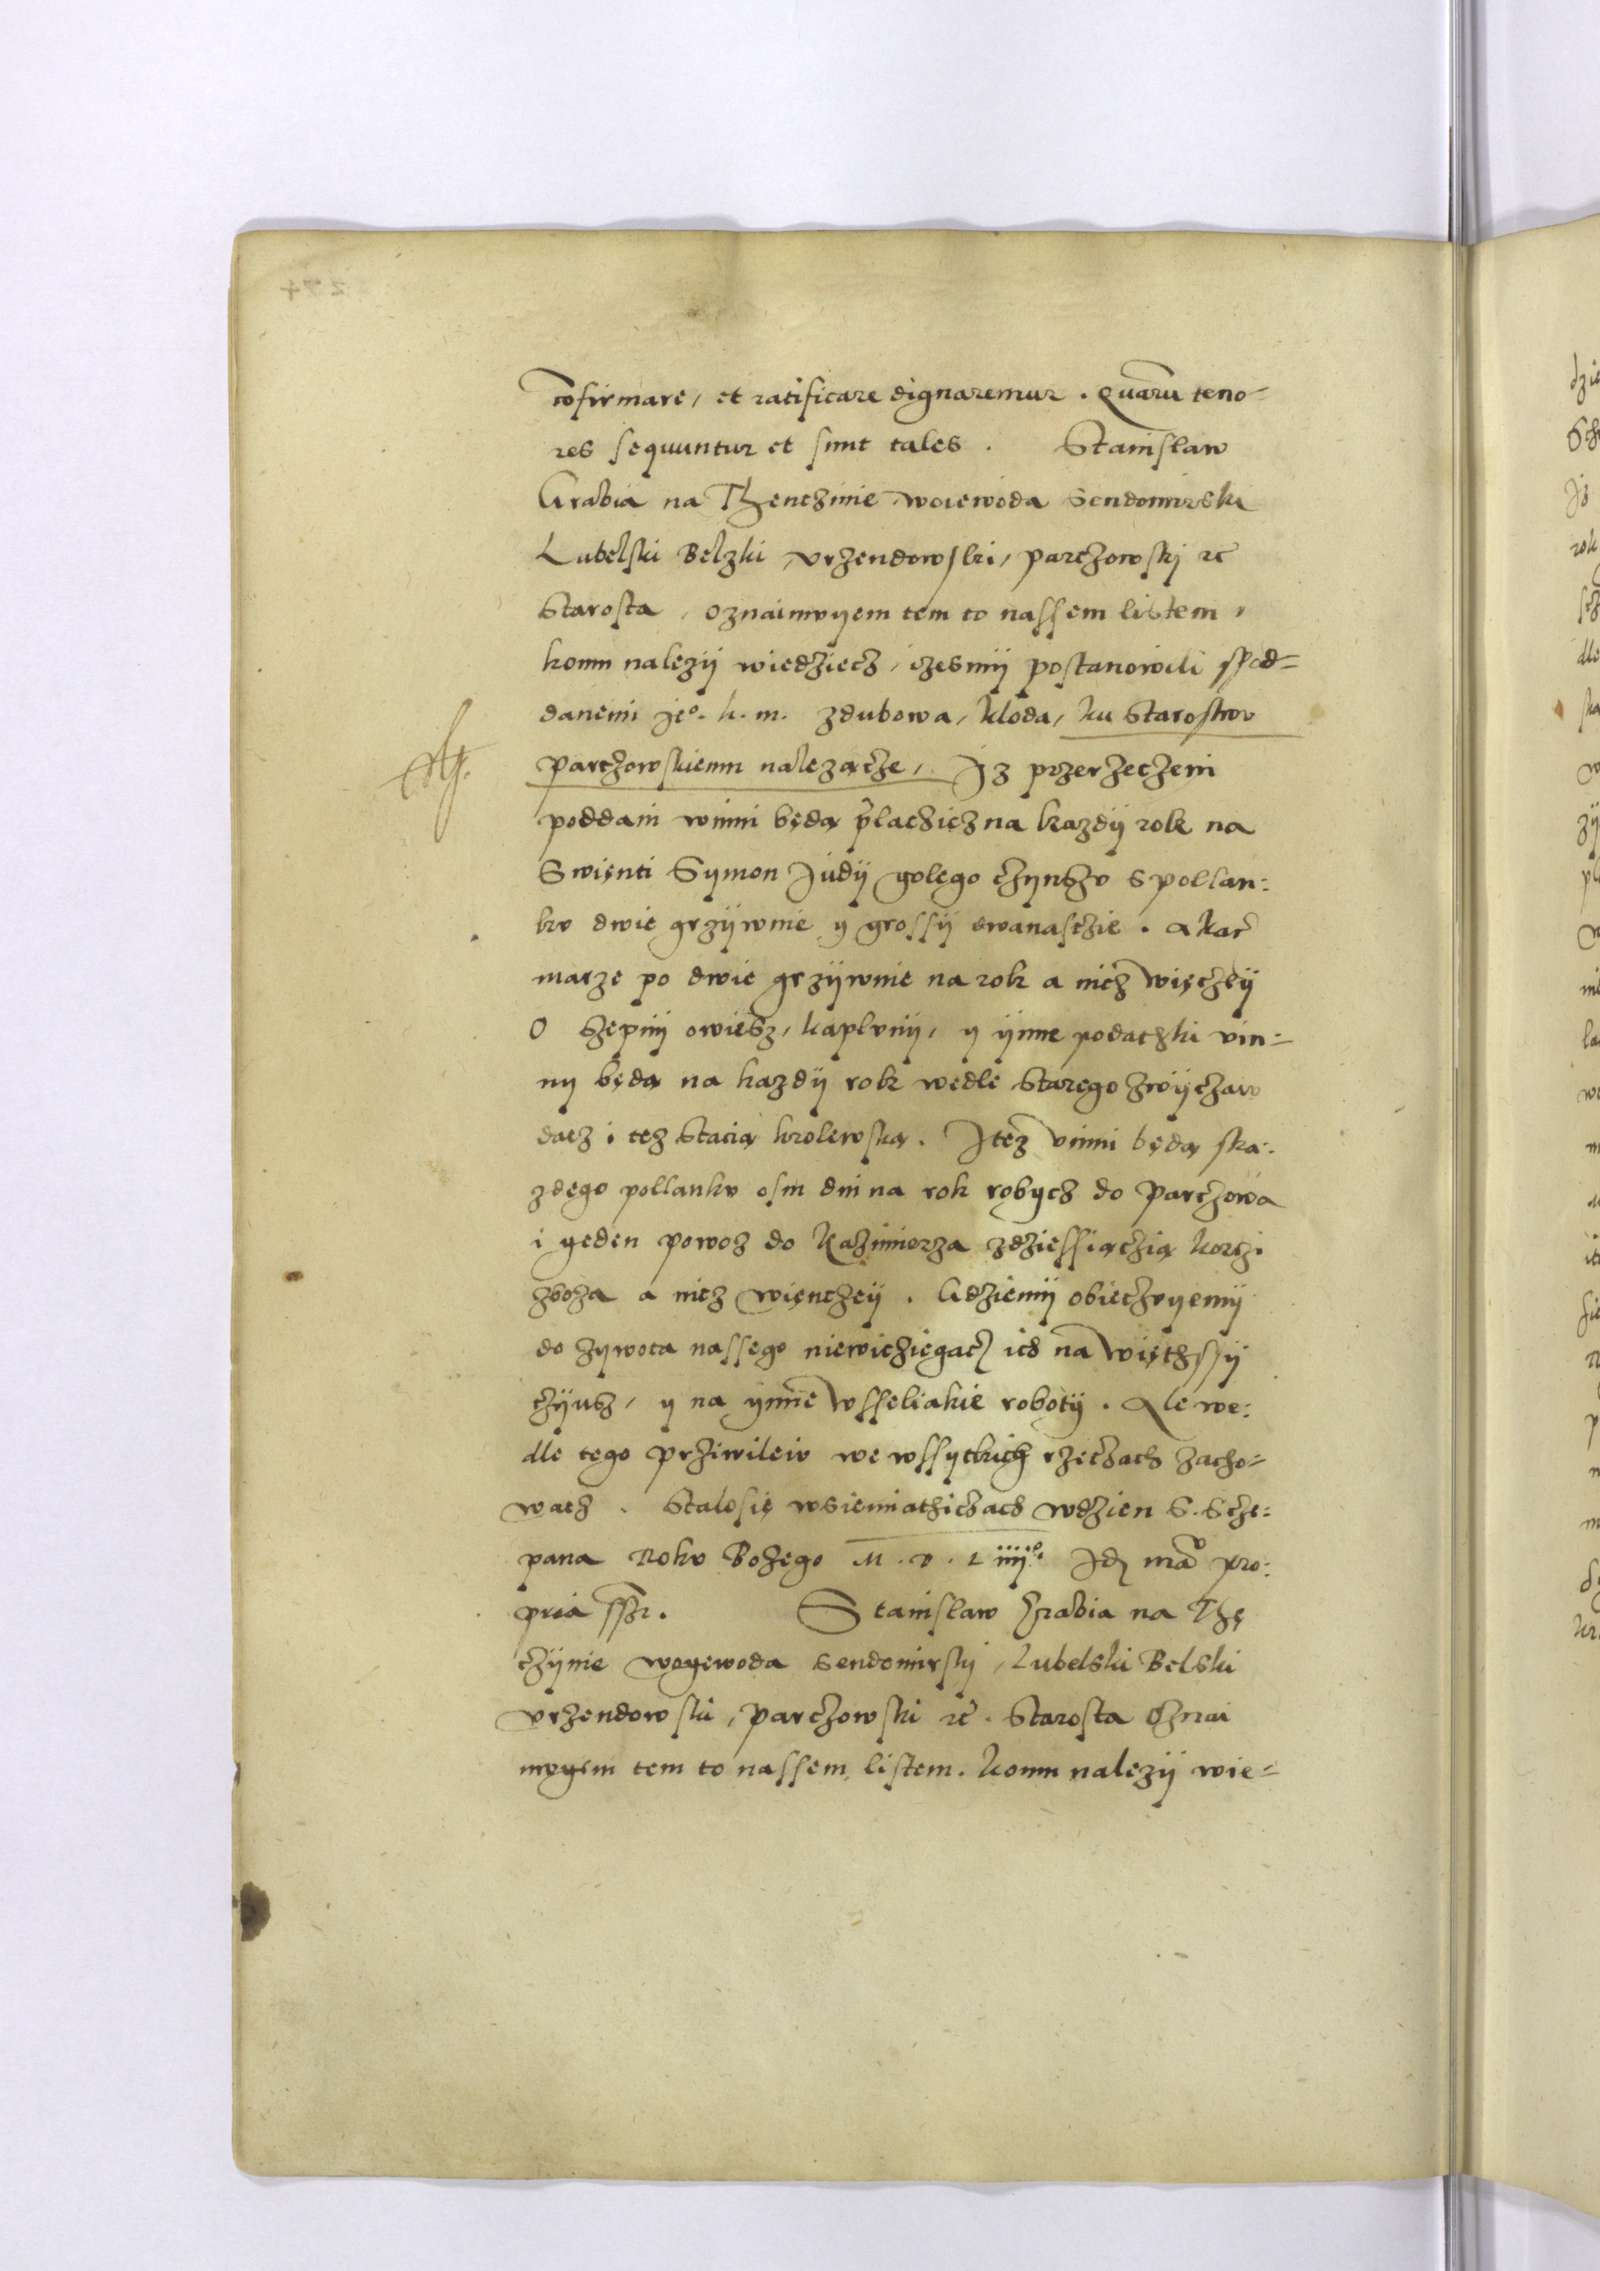 confirmare, et ratificare dignaremur. Quarū teno-
res sequuntur et sunt tales. Stanislaw
Grabia na Thenczinie woiewoda Sendomirski
Lubelski Belzki vrzendowski, parczowskj rc
Starosta, oznaimvyem tem to nassem listem,
komu nalezij wiedziecz, izesmij postanowili spod-
danemi je°. k. m. zdubowa, kloda, ku Starostwv
parczowskiemu nalezącze, Iz przerzeczeni
poddani winni będą placzicz na kazdij rok na
Swięnti Symon Judij golego czynszv spollan:
kv dwie grzijwnie y grossij dwanasczie. A kar
marze po dwie grzijwnie na rok a nicz więczeij
O Szepny owiesz, kaplvnij, y ijnne podaczki vin-
ny będą na kazdij rok wedle Starego zwijczaiv
dacz i tez Stacią krolewską. Itez vinni będą ska:
zdego pollankv osm dni na rok robycz do parczowa
i yeden powoz do kazimierza zdziessiączią korczi
zboza a nicz więnczeij. Gdziemij obieczvyemij
do zywota nassego niewicziegacz ich na więthssij
czijnsz, y na ynnie wsseliakie robotij. Ale we:
dle tego prziwileiv we wssytkich rzeczach zacho-
wacz. Stalosię wsiemiathiczach wdzien S. Scze:
pana Rokv Bozego M. D. Liiij°. Idz mão pro:
pria sspt. Stanislaw hrabia na Thę
czijnie woyewoda Sendomirskj, Lubelski Belski
vrzendowski, parczowski rc. Starosta Oznai
mvyem tem to nassem listem. komu nalezij wie-
274